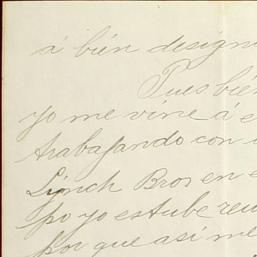 á bién design
Pues bién
yo me vine á e
trabajando con
Linch Bros en e
po yo estube reu
por que así me